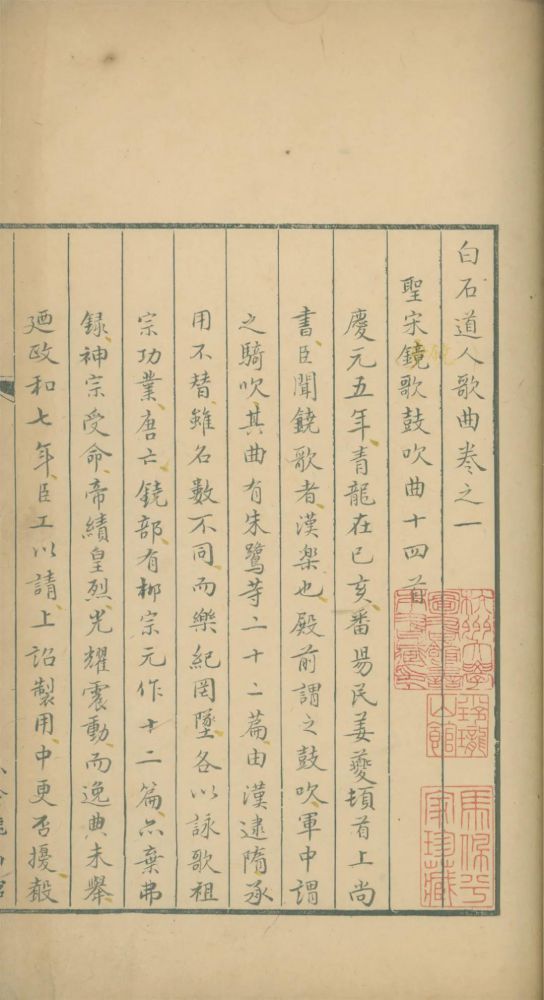 白石道人歌曲卷之一
聖宋鏡歌鼓吹曲十四首
慶元五年青龍在己亥番昜民姜夔頓首上尚
書臣聞鐃歌者漢樂也殿前謂之鼓吹軍中謂
之騎吹其曲有朱鷺等二十二篇由漢逮隋承
用不替雖名數不同而樂紀罔墜各以詠歌祖
宗功業唐亡鐃部有栁宗元作十二篇亦棄弗
録神宗受命帝績皇烈光耀震動而逸典未舉
廼政和七年臣工以請上詔製用中更否擾殽
杭州大學
玲瓏
山館
馬佩兮
家珍藏